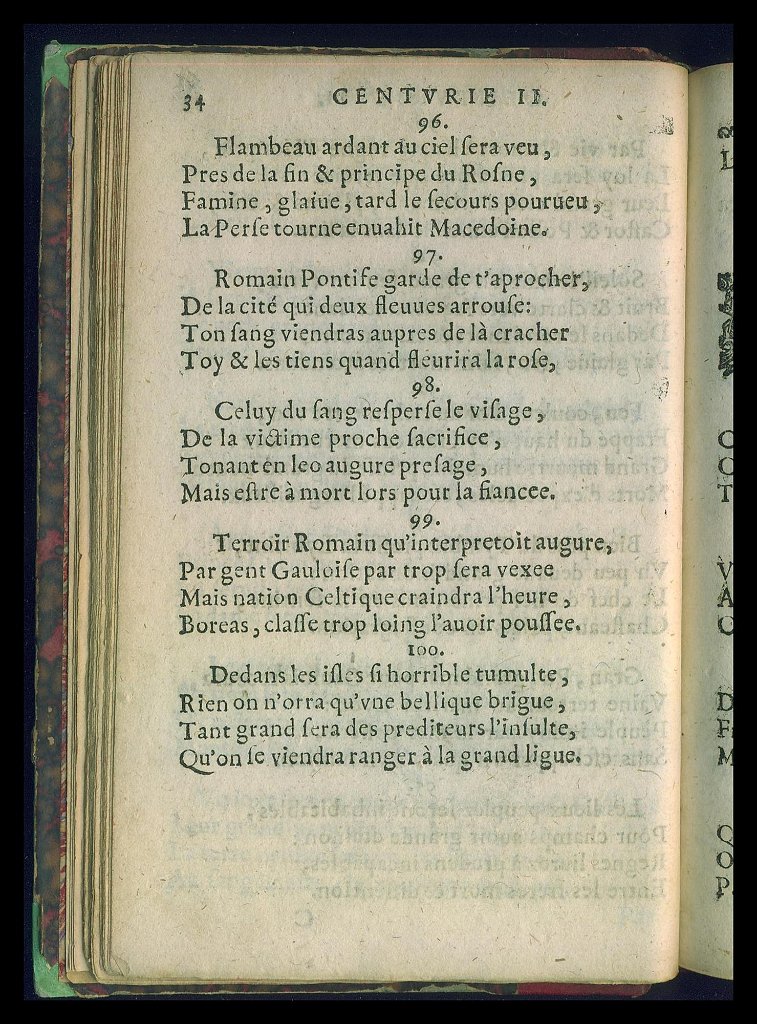 34 CENTVRIE II.
96.
Flambeau ardant au ciel ſera veu,
Pres de la fin & principe du Roſne,
Famine, glaiue, tard le ſecours pourueu,
La Perſe tourne enuahit Macedoine.
97.
Romain Pontife garde de t'aprocher,
De la cité qui deux fleuues arrouſe:
Ton ſang viendras aupres de là cracher
Toy & les tiens quand fleurira la roſe,
98.
Celuy du ſang reſperſe le viſage,
De la victime proche ſacrifice,
Tonant en leo augure preſage,
Mais eſtre à mort lors pour la fiancee.
99.
Terroir Romain qu'interpretoit augure,
Par gent Gauloiſe par trop ſera vexee
Mais nation Celtique craindra l'heure,
Boreas, claſſe trop loing l'auoir pouſſee.
100.
Dedans les iſles ſi horrible tumulte,
Rien on n'orra qu'vne bellique brigue,
Tant grand ſera des prediteurs l'inſulte,
Qu'on ſe viendra ranger à la grand ligue.